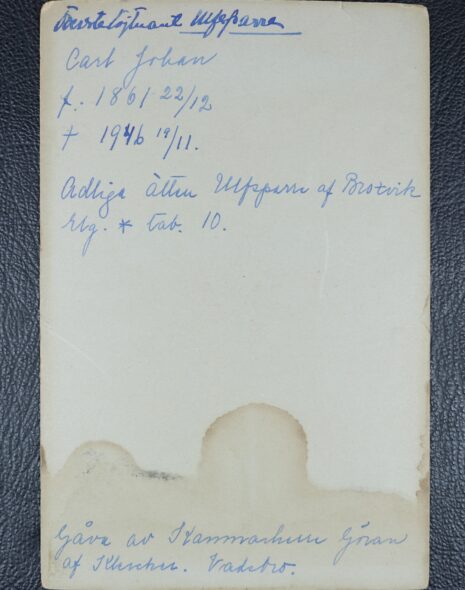 Överstelöjtnant Ulfsparre
Carl Johan
f. 1861 22/12
† 1946 19/11.
Adliga ätten Ulfsparre af Broxvik
Elg. * tab. 10.
Gåva av Kammarherre Göran
af Klercker. Vadsbro.